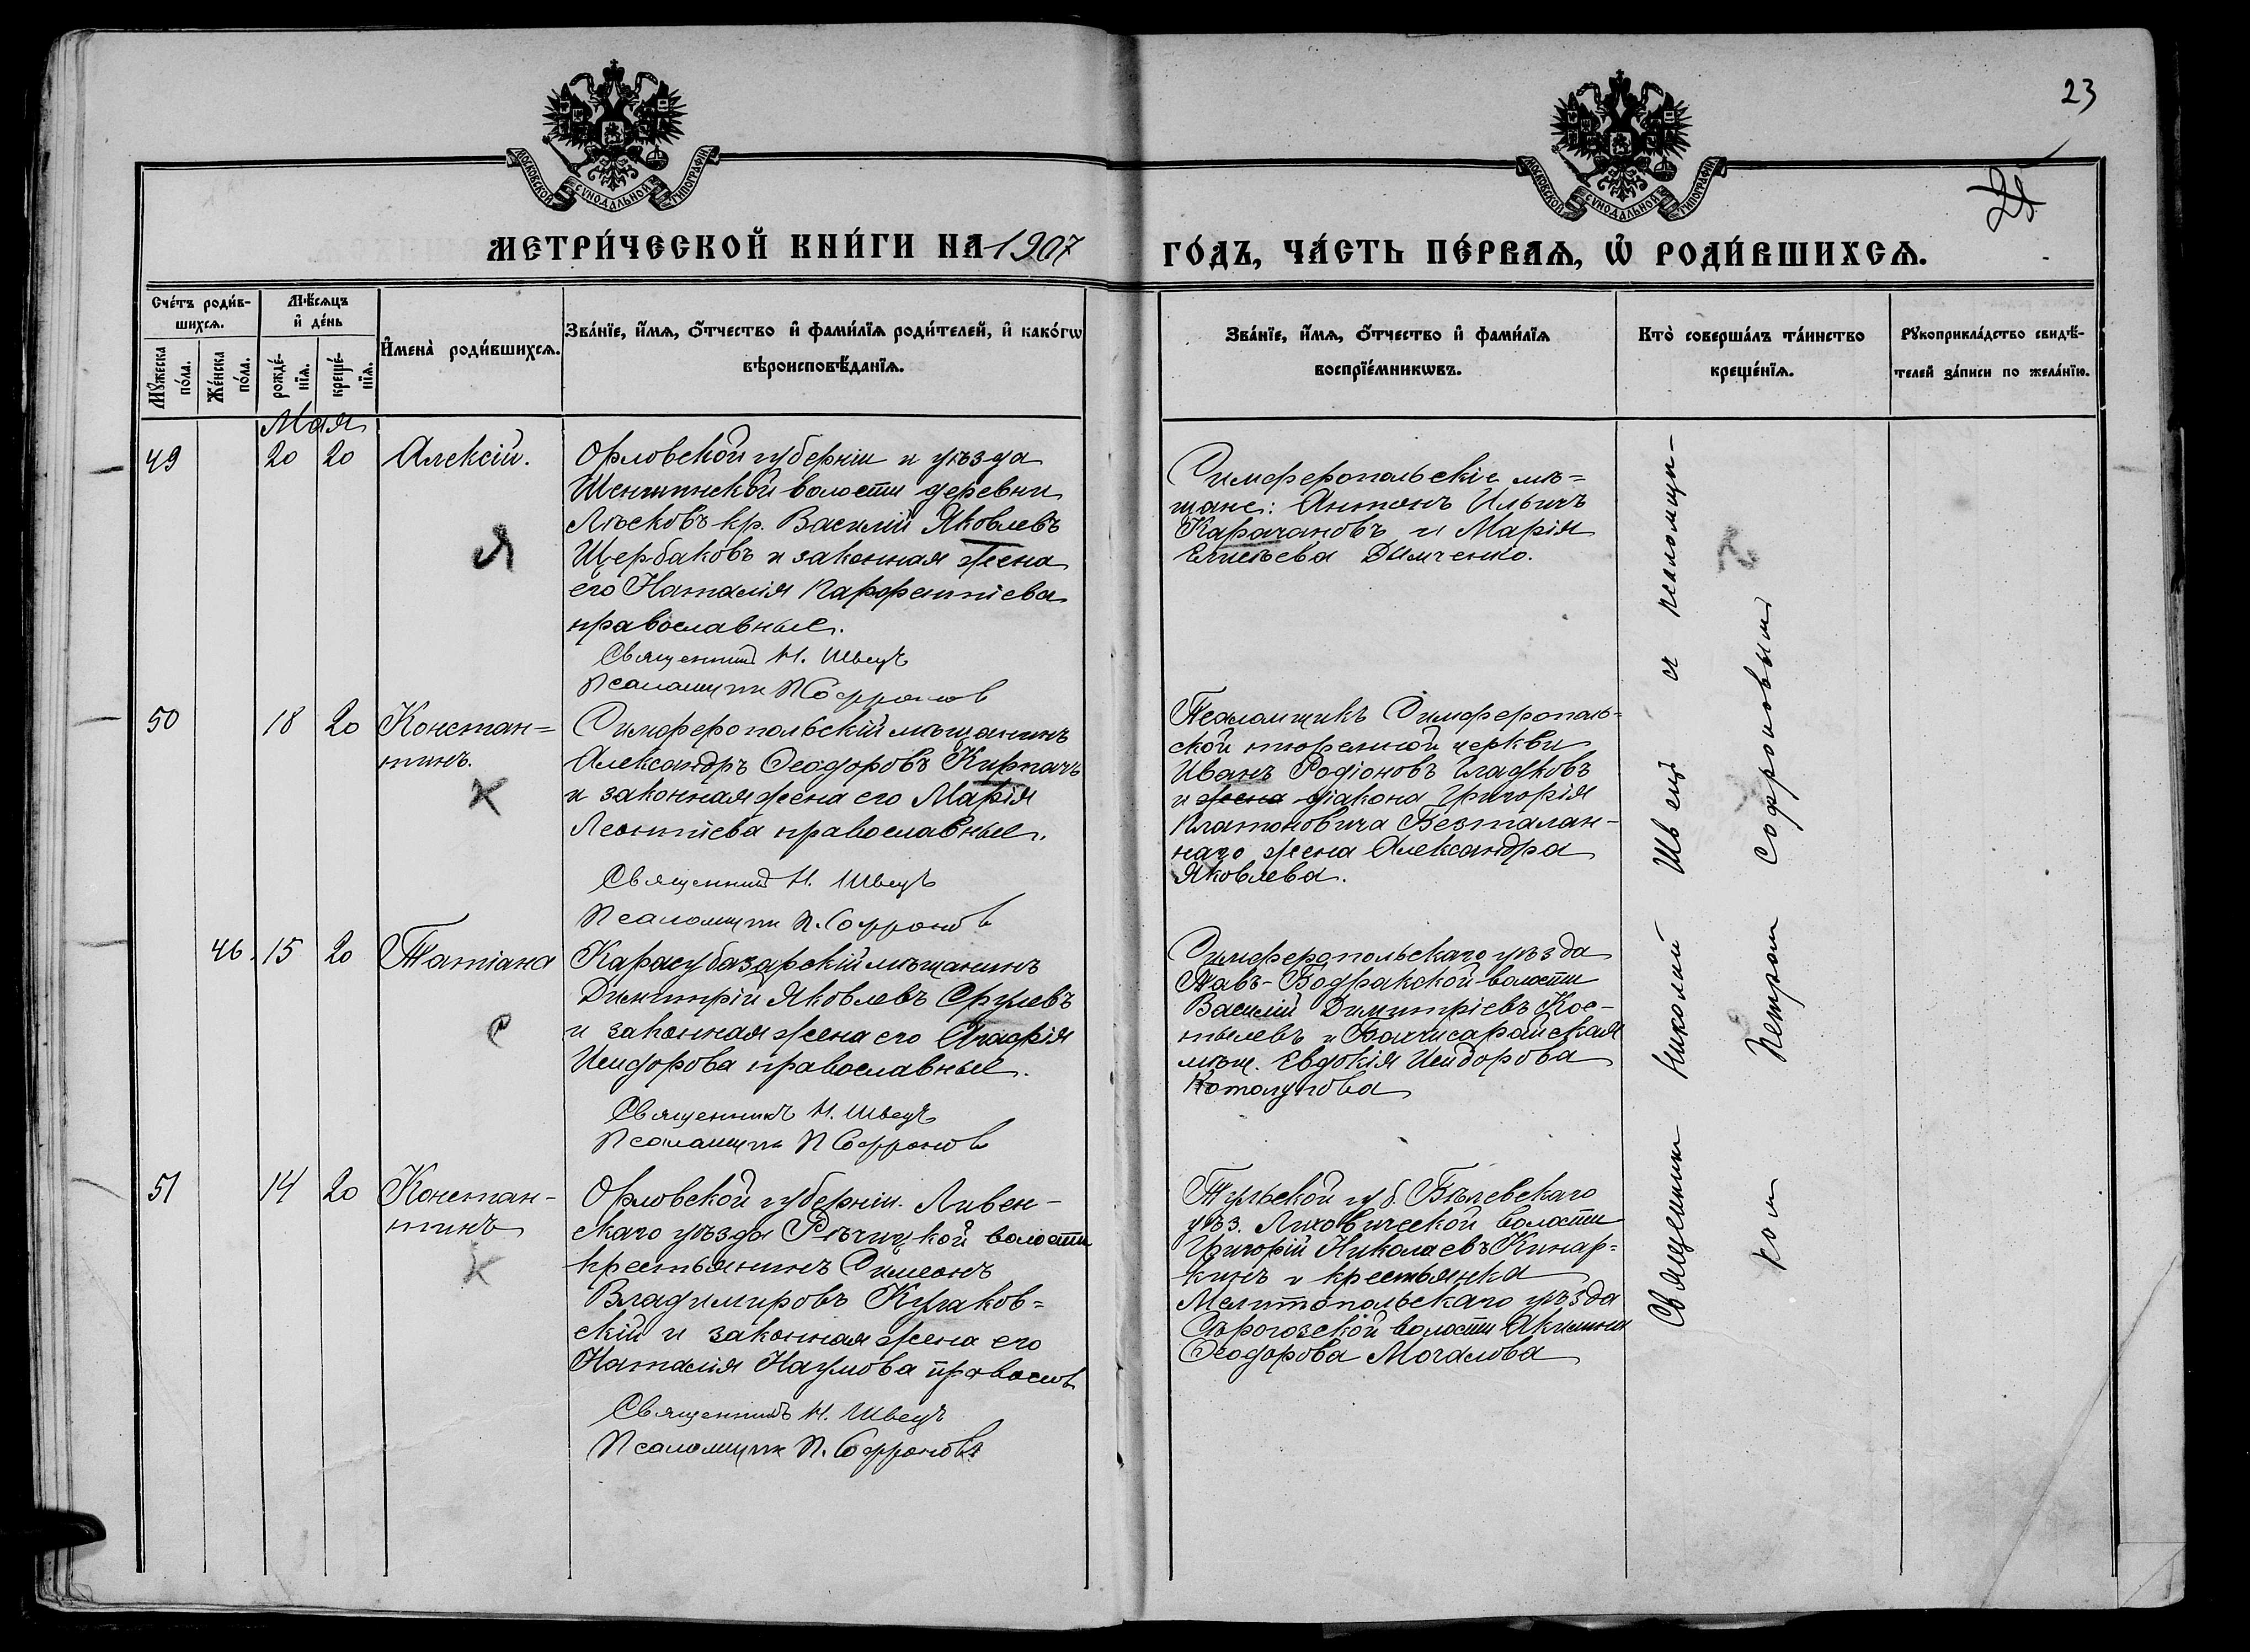 23
МОСКОВСКОЙ СѴНОДАЛЬНОЙ ТИПОГРАФІИ.
МОСКОВСКОЙ СѴНОДАЛЬНОЙ ТИПОГРАФІИ.
МЕТРИ́ЧЕСКОЙ КНИ́ГИ НА 1907
ГО́ДЪ, ЧА́СТЬ ПЕ́РВАѦ, Ѿ РОДИ́ВШИХСѦ.
Сче́тъ роди́в-
шихсѧ.
Мꙋ́жеска
по́ла.
Же́нска
по́ла.
Мѣ́сѧцъ
и҆ де́нь
рожде́-
нїѧ.
креще́-
нїѧ.
И҆мена̀ роди́вшихсѧ.
Зва́нїе, и҆́мѧ, ѻ҆́тчество и҆ фами́лїѧ роди́телей, и҆ како́гѡ
вѣроисповѣ́данїѧ.
Зва́нїе, и҆́мѧ, ѻ҆́тчество и҆ фами́лїѧ
воспрїе́мникѡвъ.
Кто̀ соверша́лъ та́инство
креще́нїѧ.
Рꙋкоприкла́дство свидѣ́-
телей за́писи по жела́нїю.
Мая
49
20
20
Алексій.
Орловской губерніи и уѣзда
волости деревни
Лѣсковъ кр. Василій Яковлевъ
Щербаковъ и законная жена
его Наталія Парфентіева
православные.
Священникъ Н. Швецъ
Псаломщик П Софронов
Симферопольскіе мѣ=
щане: Антонъ Ильичъ
Карачановъ и Марія
Димченко.
50
18
20
Констан=
тинъ.
Симферопольскій мѣщанинъ
Александръ Ѳеодоровъ Кирпачъ
и законная жена его Марія
Леонтіева православные.
Священникъ Н. Швецъ
Псаломщик П. Софронов
Псаломщикъ Симферополь-
ской тюремной церкви
Иванъ Родіоновъ Гладковъ
и жена діакона Григорія
Платоновича Безталан-
наго жена Александра
Яковлева.
46
15
20
Татіана
Карасубазарскій мѣщанинъ
Димитрій Яковлевъ
и законная жена его Агафія
Исидорова православные.
Священникъ Н. Швецъ
Псаломщик П Софронов
Симферопольскаго уѣзда
Тавъ-Бодракской волости
Василій Димитріевъ Кос-
тылевъ и Бахчисарайская
мѣщ. Евдокія Исидорова
51
14
20
Констан-
тинъ
Орловской губерніи. Ливен-
скаго уѣзда Рѣчицкой волости
крестьянинъ Симеонъ
Владимировъ Кулаков=
скій и законная жена его
Наталія Наумова правосл
Священникъ Н. Швецъ
Псаломщик П. Софроновъ
Тульской губ. Бѣлевскаго
уѣз. волости
Григорій Николаевъ Кинар=
кинъ и крестьянка
Мелитопольскаго уѣзда
волости Акилина
Ѳеодорова Мочалова
Священник Николай Швецъ с псаломщи-
ком Петром Софроновым